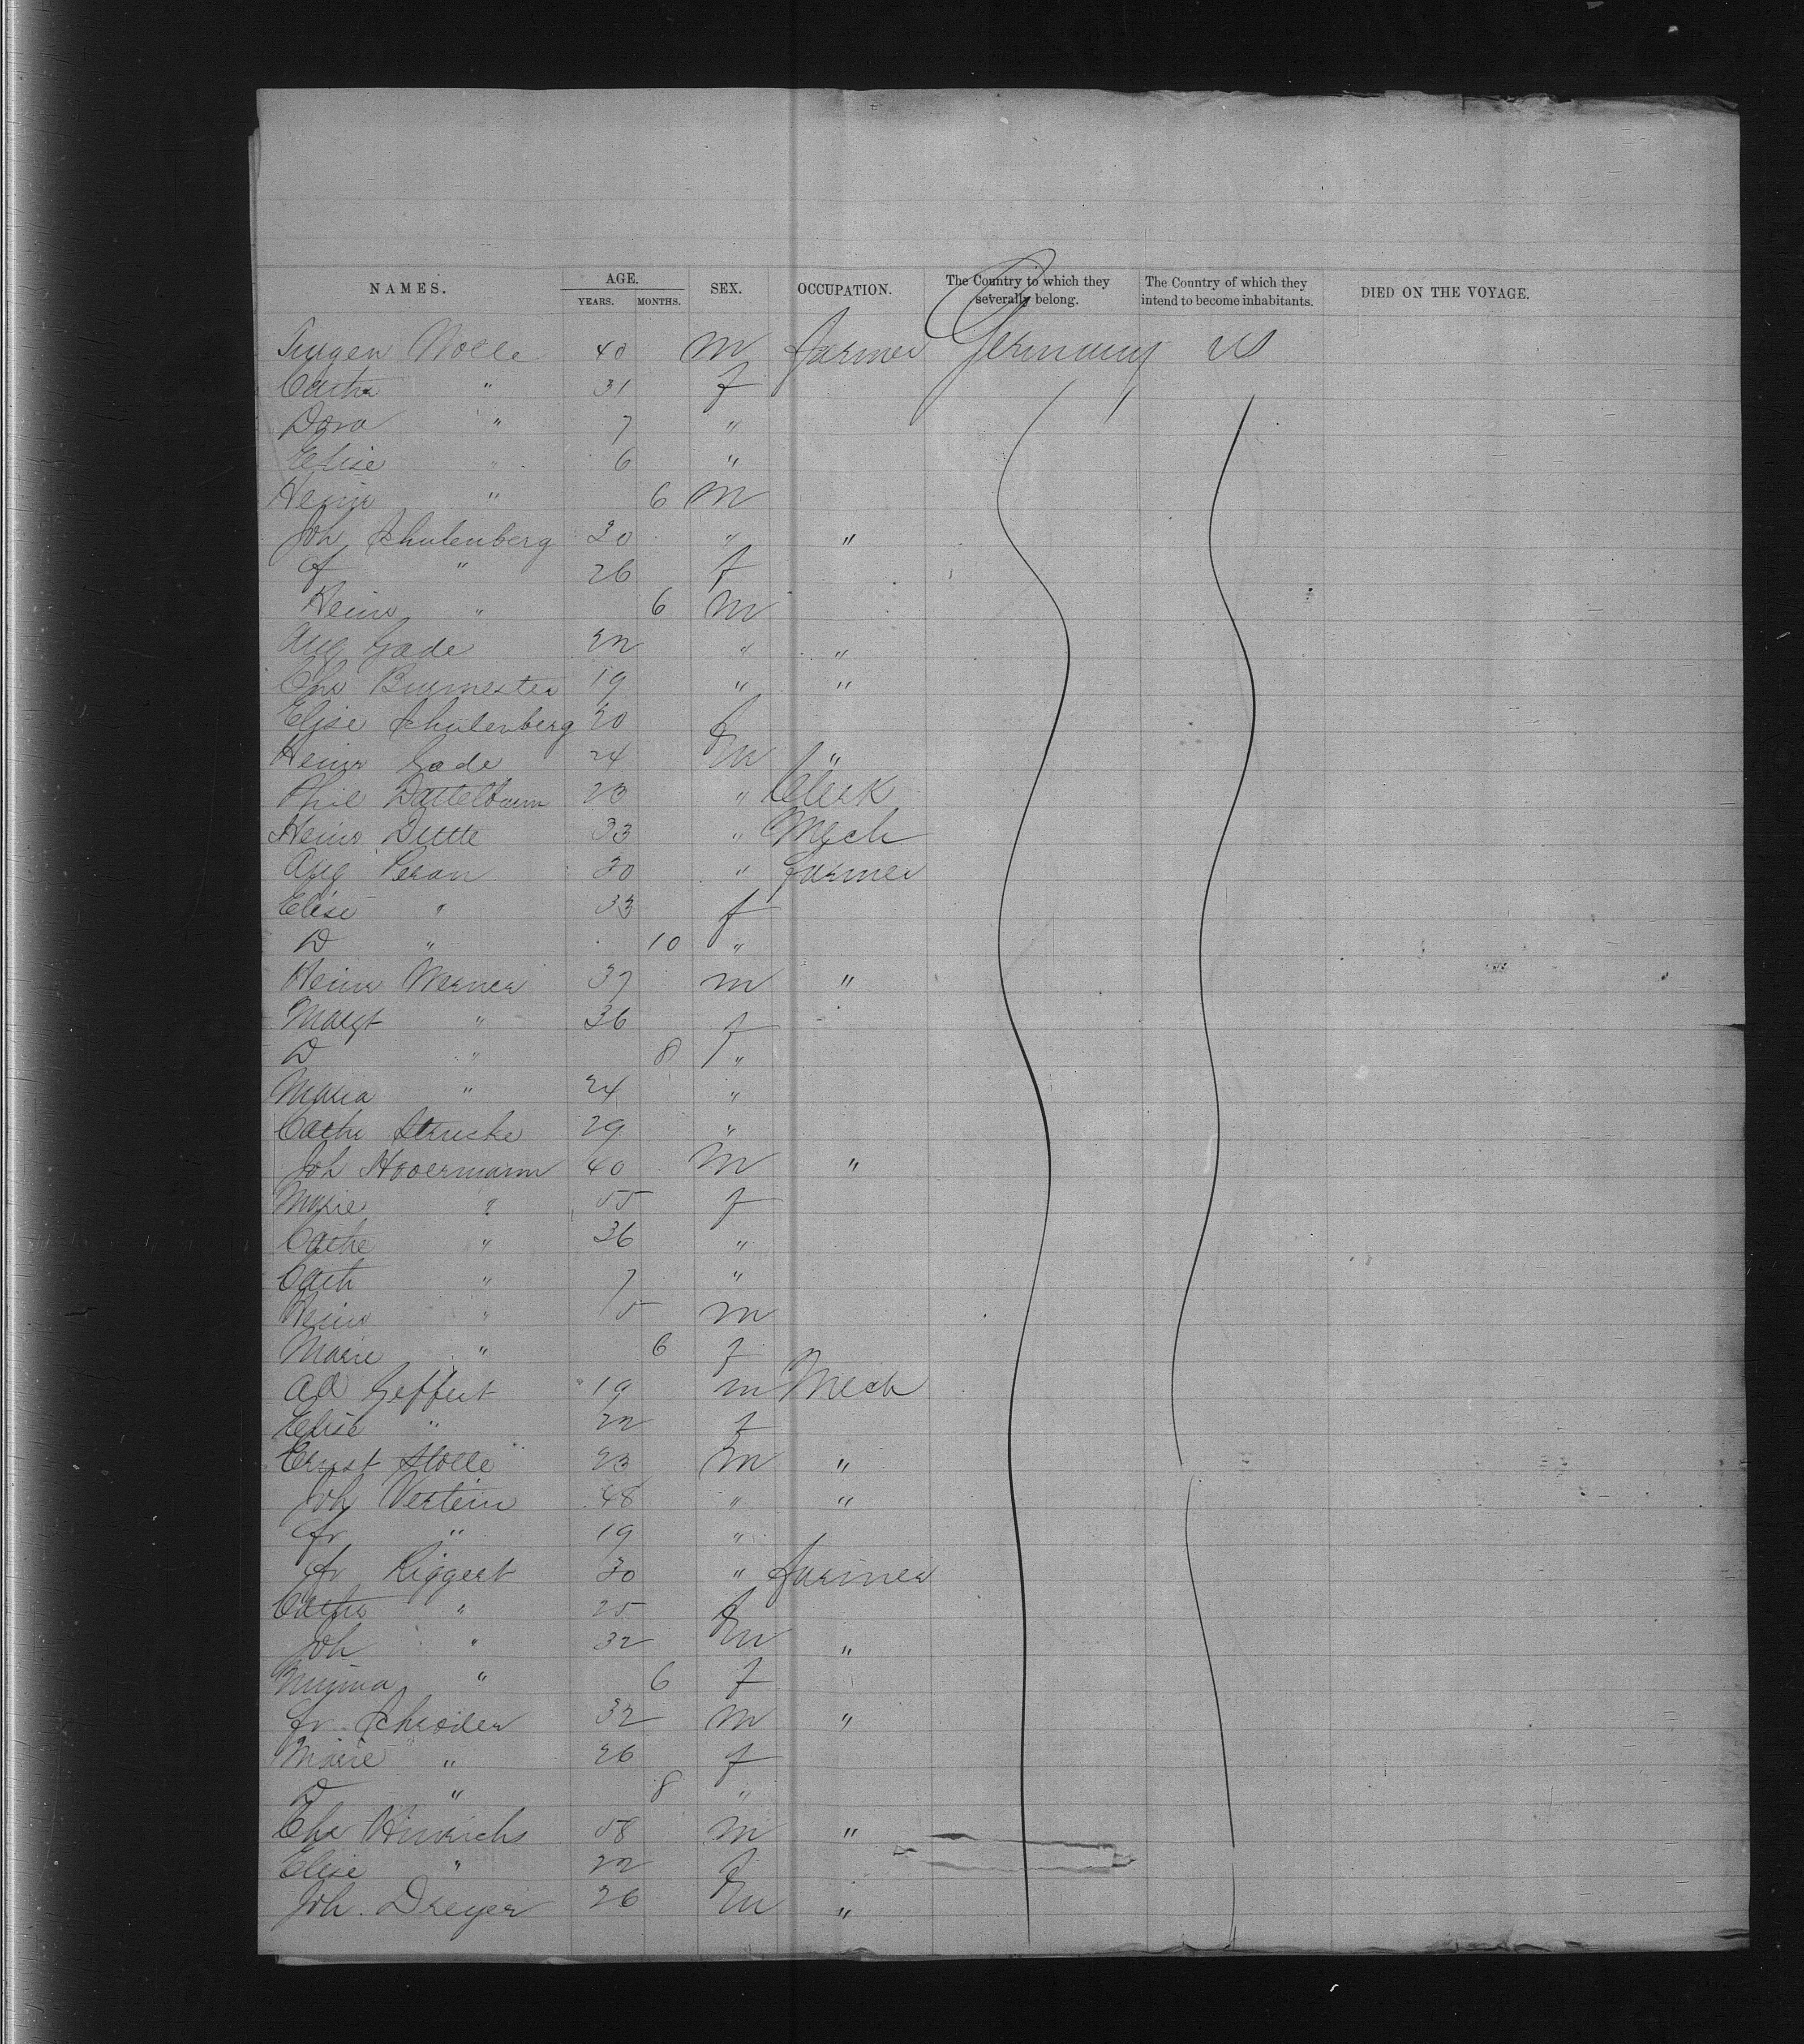 NAMES. AGE. YEARS. MONTHS. SEX. OCCUPATION. The Country to which they severally belong. The Country of which they intend to become inhabitants. DIED ON THE VOYAGE.
Nolle 40 m farmer Germany US
Cathr " 31 f
Dora " 7 "
Elise " 6 "
Heinr " 6 m
Joh Schulenberg 30 " "
" 26 f
Heinr " 6 m
Aug Gade 22 " "
Chr Burmester 19 " "
Elise Schulenberg 20 f
Heinr Gade 24 m "
Phil Dattelbaum 23 " Clerk
Heinr 33 " Mech
Aug Peran 30 " farmer
Elise " 33 f
D " 10 "
Heinr Werner 37 m "
Margt " 36 f
D " 8 f "
Maria " 24 "
Cathr Strucke 29 "
Joh Hovermann 40 m "
Marie " 55 f
Cathe " 36 "
Cath " 7 "
Heinr " 5 m
Marie " 6 f
Ad Geffert 19 m Mech
Elise " 22 f
Ernst Stolle 23 m "
Joh Vertein 48 " "
Fr " 19 "
Fr Riggert 30 " farmer
Cathr " 25 f
Joh " 32 m "
Minna " 6 f
Fr Schroder 32 m "
Marie " 26 f
D " 8 "
Chr Hinrichs 58 m "
Elise " 22 f
Joh. Dreyer 26 m "